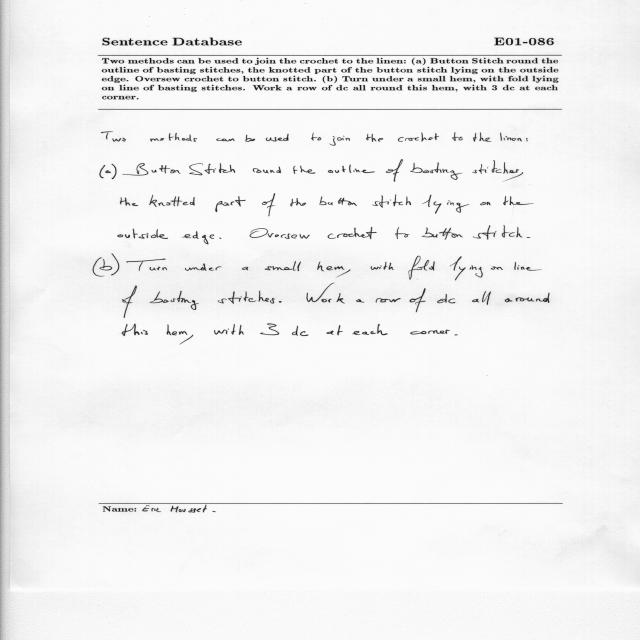 Sentence Database E01-086
Two methods can be used to join the crochet to the linen: (a) Button Stitch round the
outline of basting stitches, the knotted part of the button stitch lying on the outside
edge. Oversew crochet to button stitch. (b) Turn under a small hem, with fold lying
on line of basting stitches. Work a row of dc all round this hem, with 3 dc at each
corner.
Two methods can be used to join the crochet to the linen:
(a) Button Stitch round the outline of basting stitches,
the knotted part of the button stitch lying on the
outside edge. Oversew crochet to button stitch.
(b) Turn under a small hem, with fold lying on line
of basting stitches. Work a row of dc all around
this hem, with 3 dc at each corner.
Name: Eric Mousset -